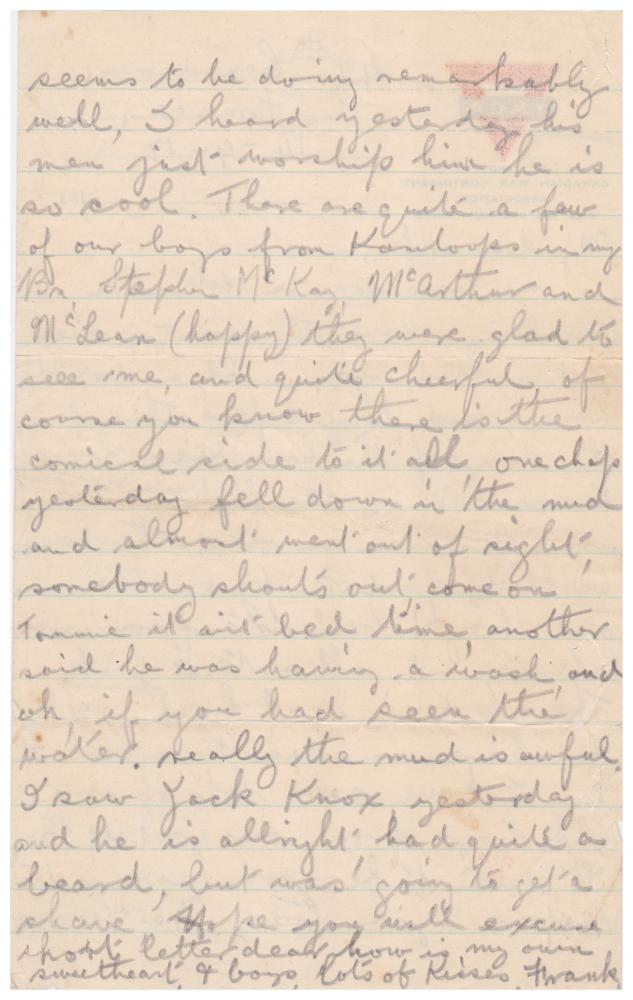 seems to be doing remarkably
well, I heard yesterday his
men just worship him he is
so cool. There are quite a few
of our boys from Kamloops in my
Bn, Stephen McKay, McArthur and
McLean (happy) they were glad to
see me, and quite cheerful, of
course you know there is the
comical side to it all, one chap
yesterday fell down in the mud
and almost went out of sight,
somebody shouts out, come on
Tommie it ain't bed time, another
said he was having a wash, and
oh, if you had seen the
water. really the mud is awful.
I saw Jack Knox yesterday
and he is allright, had quite a
beard, but was going to get a
shave. Hope you will excuse
short letter dear, how is my own
sweetheart, & boys, lots of Kisses. Frank